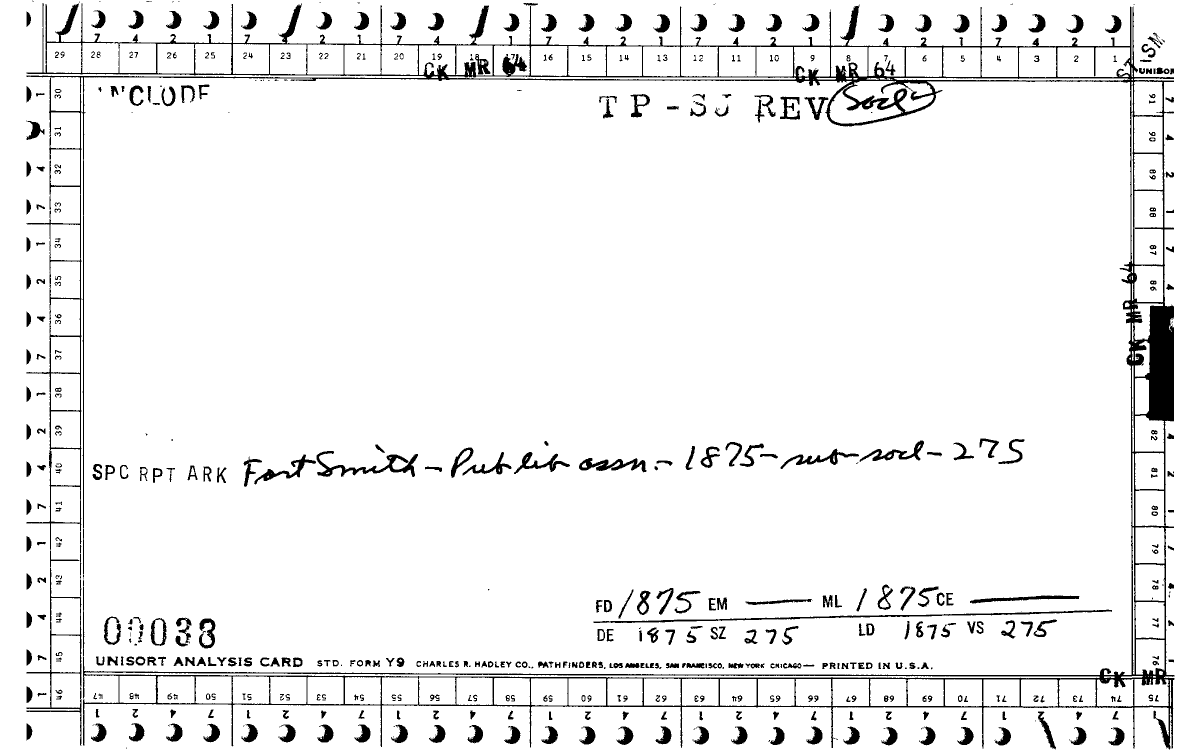 7 4 2 1 7 4 2 1 7 4 2 1 7 4 2 1 7 4 2 1 7 4 2 1 7 4 2 1
29 28 27 26 25 24 23 22 21 20 19 18 17 16 15 14 13 12 11 10 9 8 7 6 5 4 3 2 1
CK MR 64 CK MR 64
ST ISM
UNISOR
INCLUDE
TP-SJ REV Socl
CK MR 64
SPC RPT ARK Fort Smith - Pub lib assn. - 1875 - sub-socl - 275
FD 1875 EM — ML 1875 CE —
DE 1875 SZ 275 LD 1875 VS 275
00038
UNISORT ANALYSIS CARD STD. FORM Y9 CHARLES R. HADLEY CO., PATHFINDERS, LOS ANGELES, SAN FRANCISCO, NEW YORK CHICAGO — PRINTED IN U.S.A.
CK MR
30 31 32 33 34 35 36 37 38 39 40 41 42 43 44 45 46
91 90 89 88 87 86 82 81 80 79 78 77 76
47 48 49 50 51 52 53 54 55 56 57 58 59 60 61 62 63 64 65 66 67 68 69 70 71 72 73 74 75
1 2 4 7 1 2 4 7 1 2 4 7 1 2 4 7 1 2 4 7 1 2 4 7 1 2 4 7 1